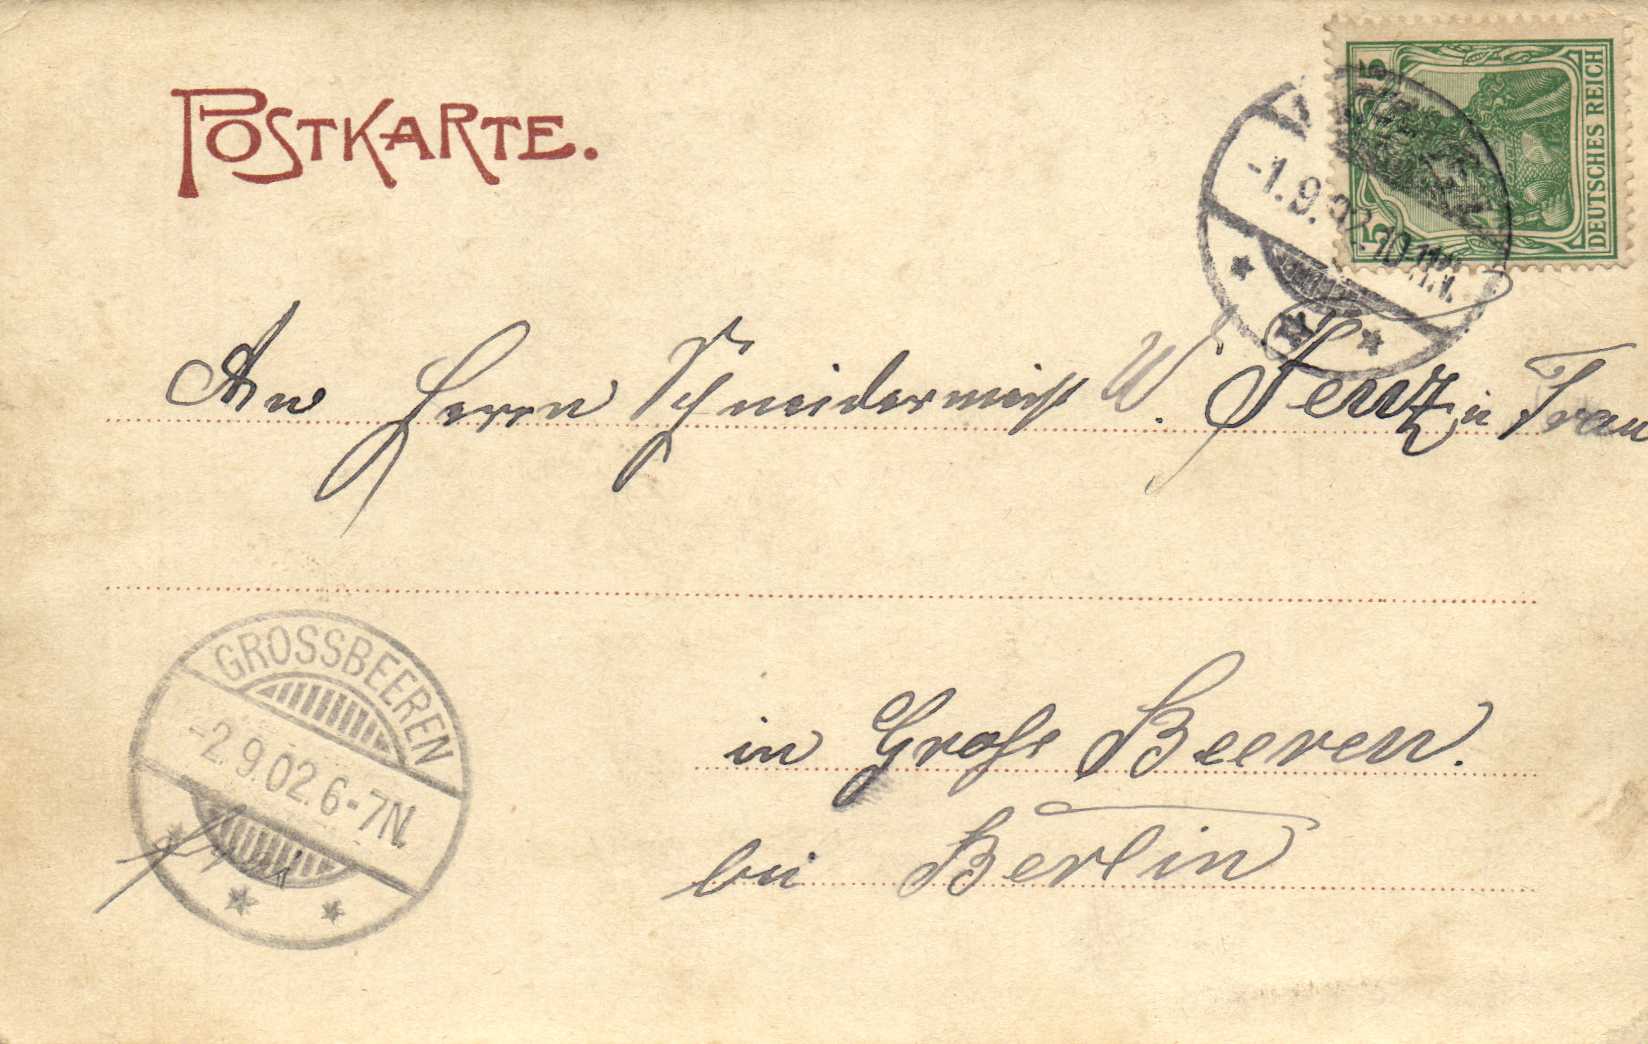 POSTKARTE.
DEUTSCHES REICH
5 5
-1.9.02.10-11N.
An Herrn Schneidermeist W. Fenz u Frau
GROSSBEEREN
-2.9.02.6-7N.
in Groß Beeren.
bei Berlin